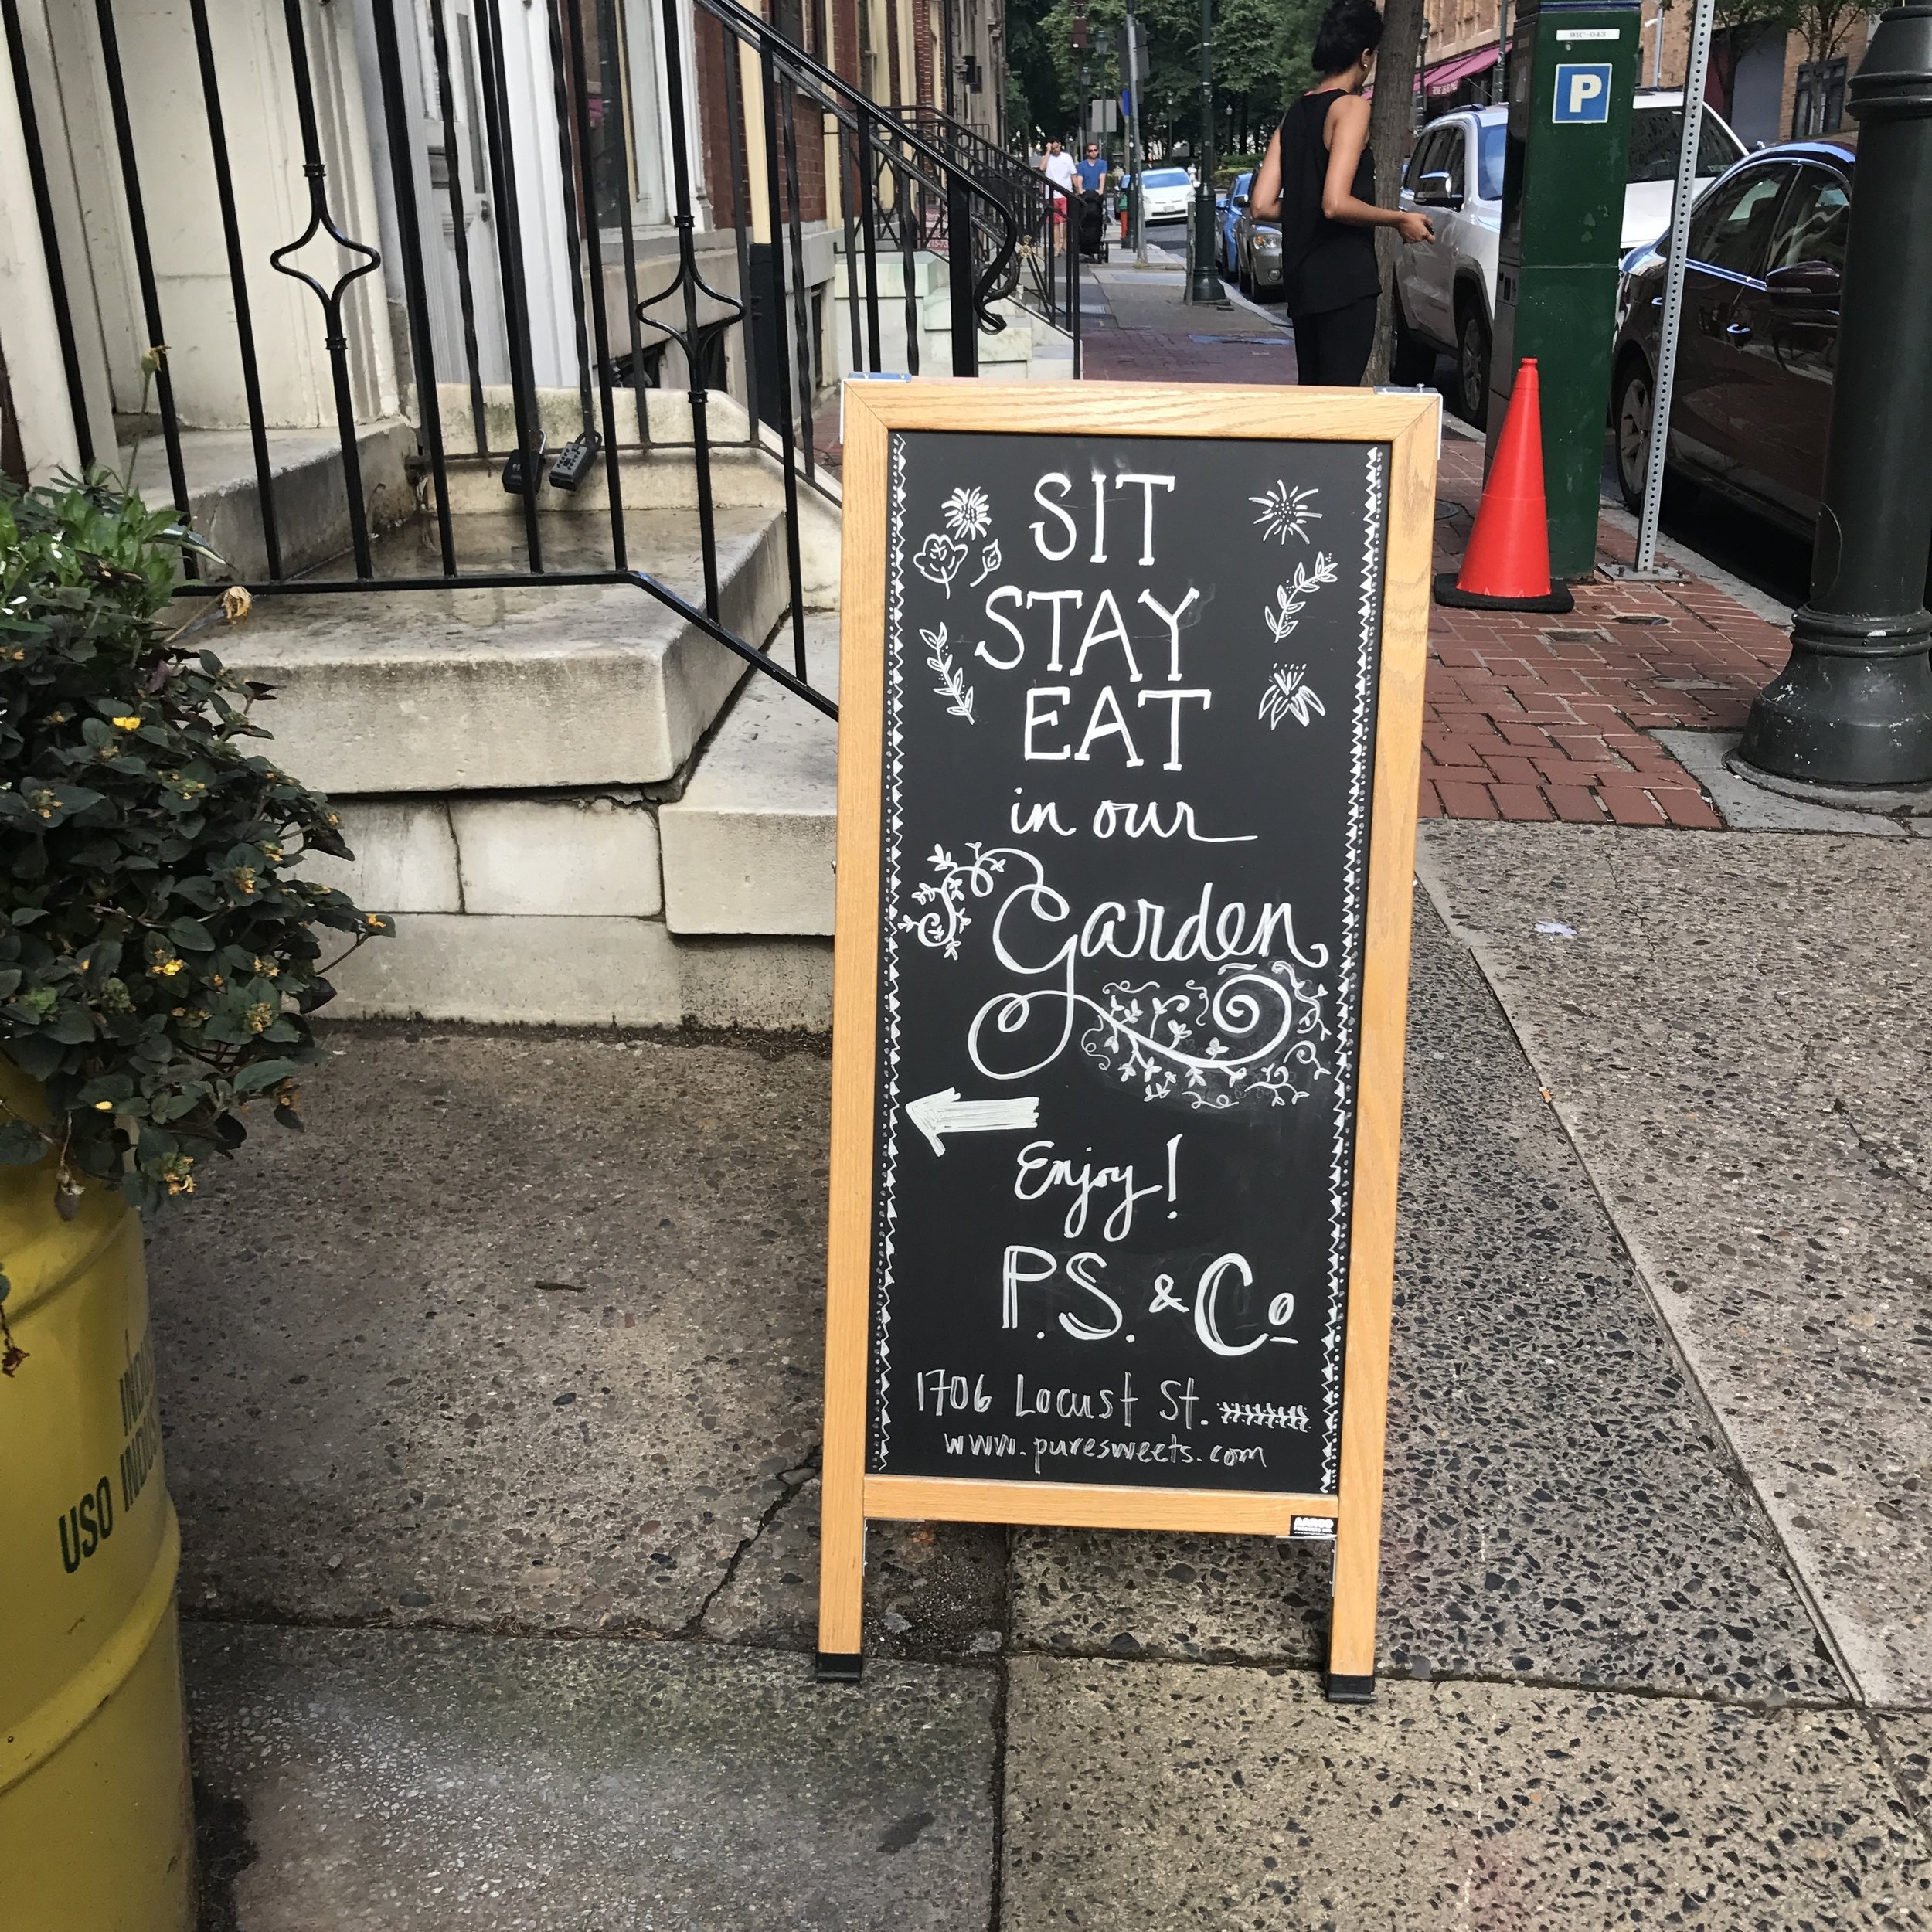 SIT
STAY
EAT
in our
Garden
Enjoy!
P.S. & Co
1706 Locust St.
www.puresweets.com
P
USO INDUS